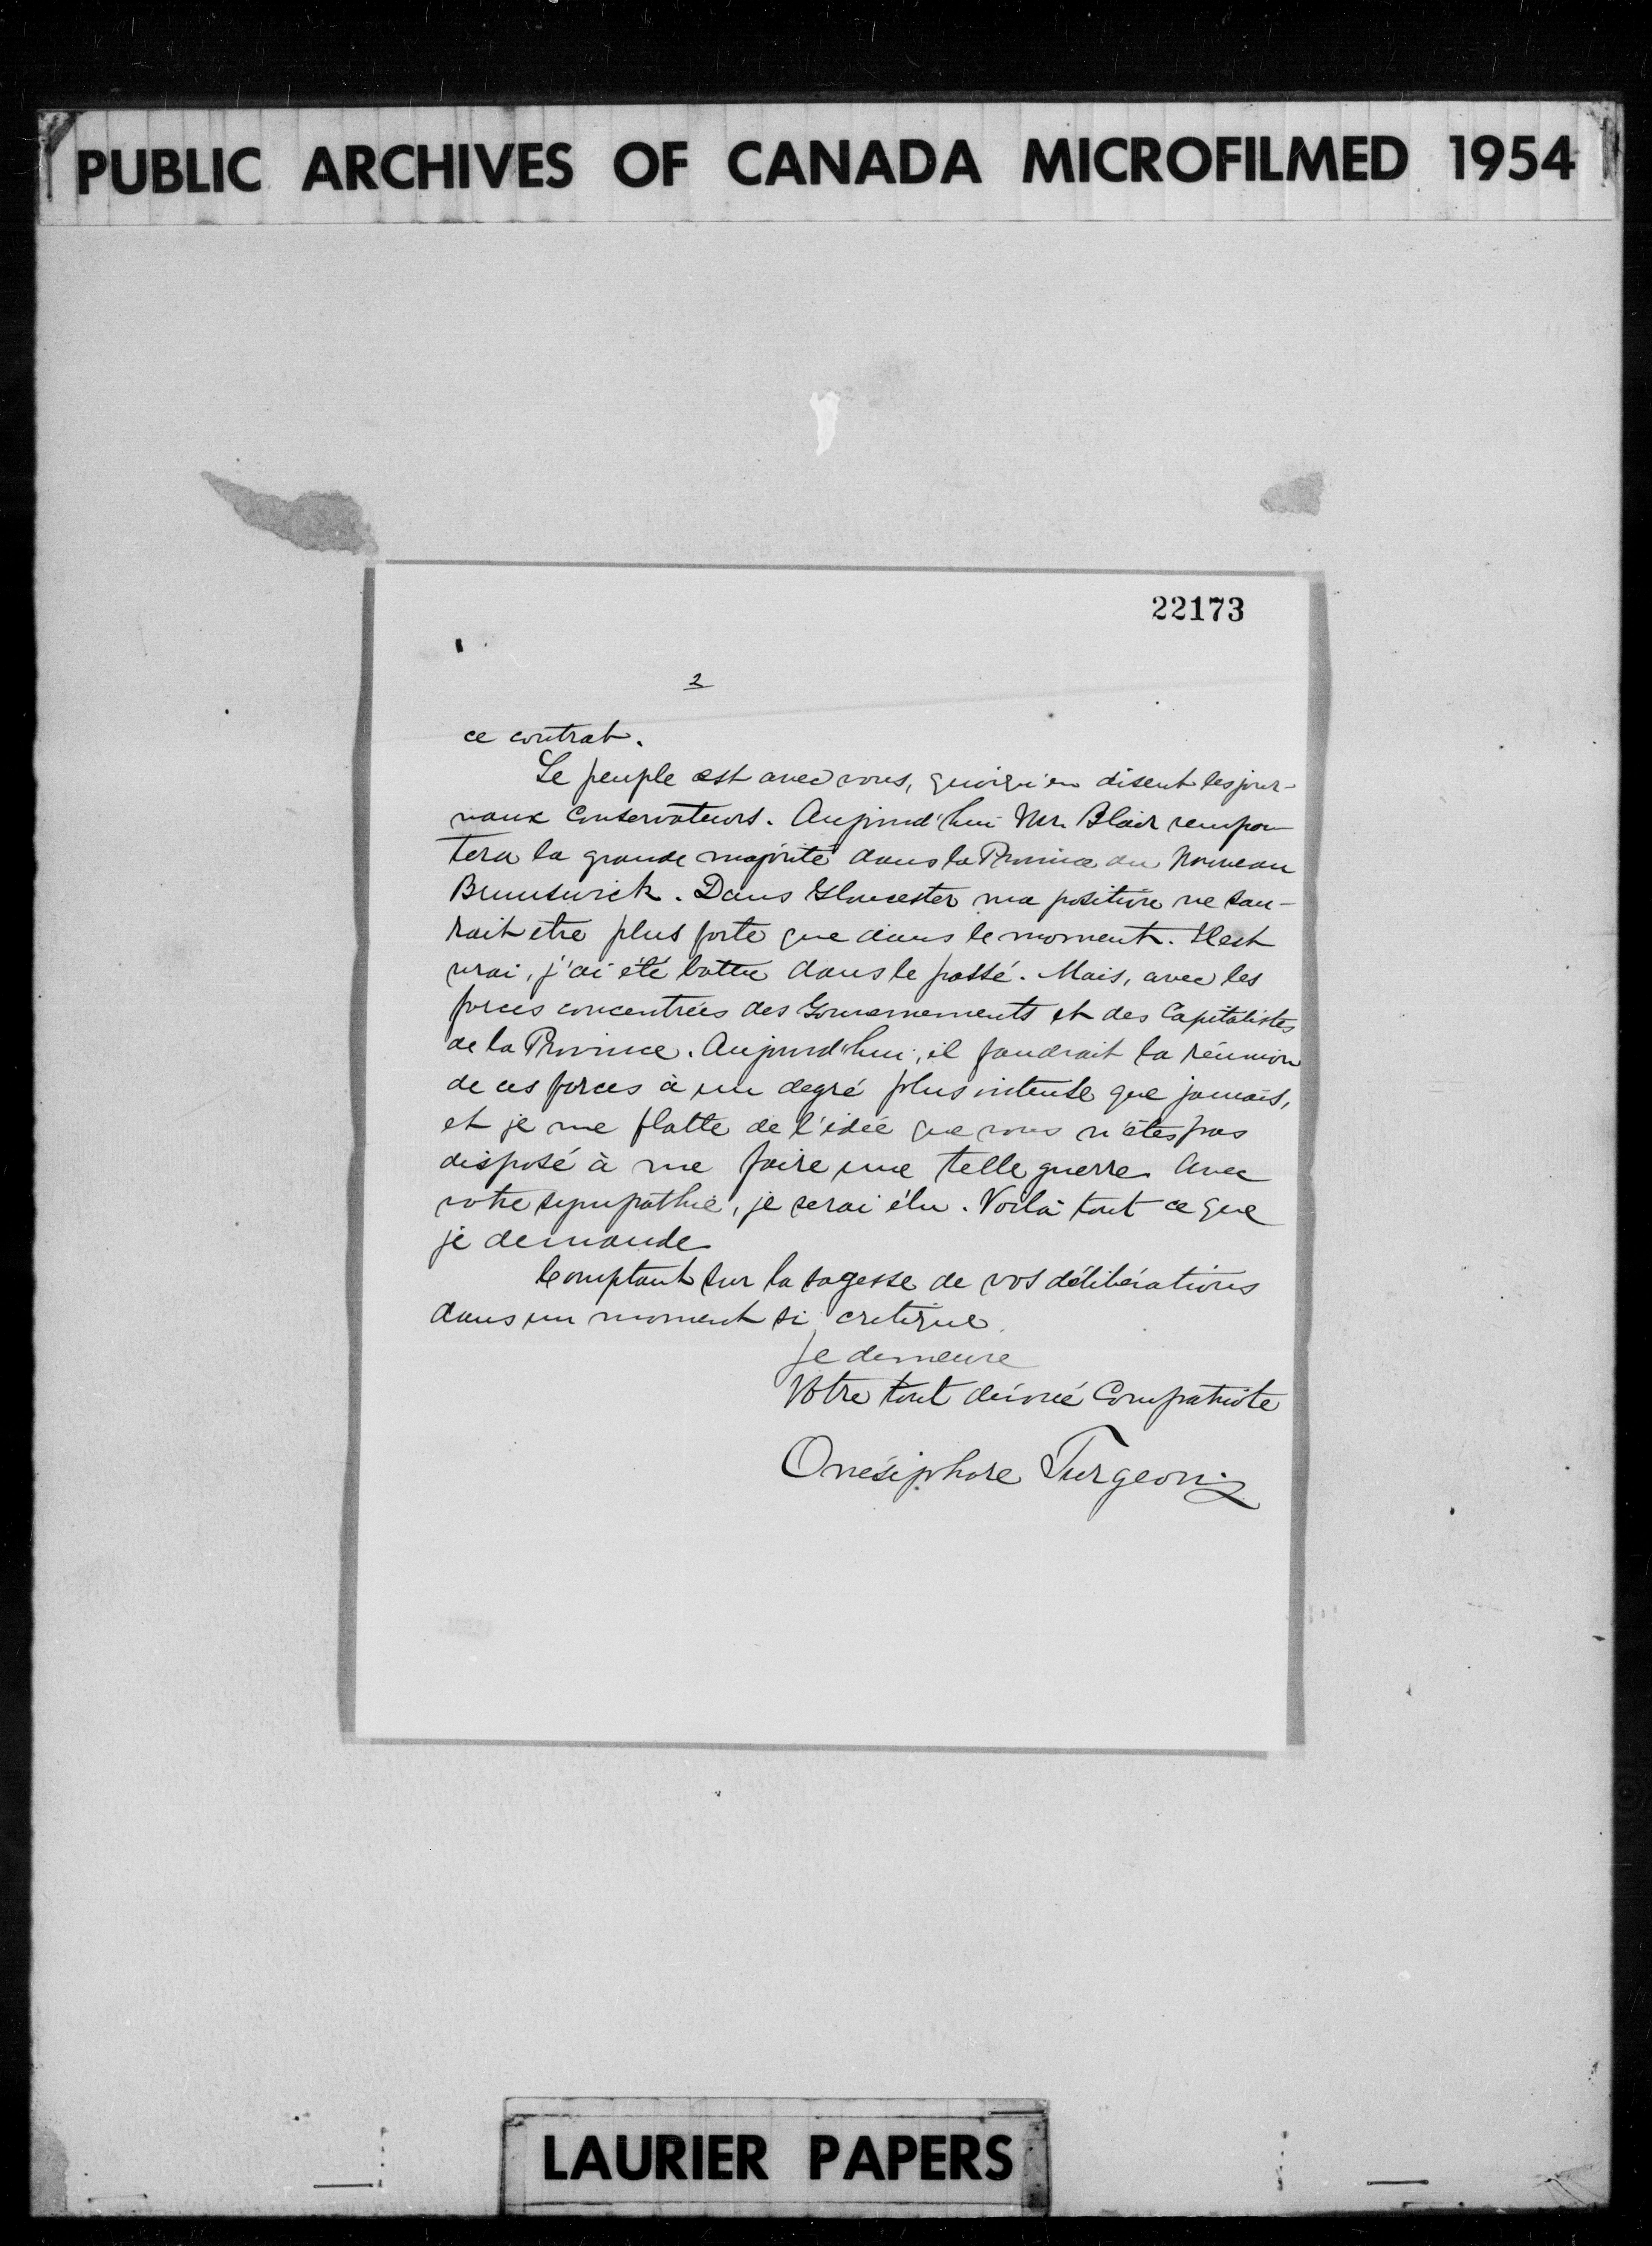 PUBLIC ARCHIVES OF CANADA MICROFILMED 1954
22173
2
ce contrat.
Le peuple est avec vous, quoiqu'en disent les jour-
naux Conservateurs. Aujourd'hui Mr. Blair rempor
tera la grande majorité dans la Province du Nouveau
Brunswick. Dans Gloucester ma position ne sau-
rait etre plus forte que dans le moment. Il est
vrai, j'ai été battu dans le passé. Mais, avec les
forces concentrées des Gouvernements et des Capitalistes
de la Province. Aujourd'hui, il faudrait la réunion
de ces forces à un degré plus intense que jamais,
et je me flatte de l'idée que vous n'êtes pas
disposé à me faire une telle guerre. Avec
votre sympathie, je serai élu. Voilà tout ce que
je demande
Comptant sur la sagesse de vos délibérations
dans un moment si critique.
Je demeure
Votre tout dévoué Compatriote
Onésiphore Turgeon
LAURIER PAPERS